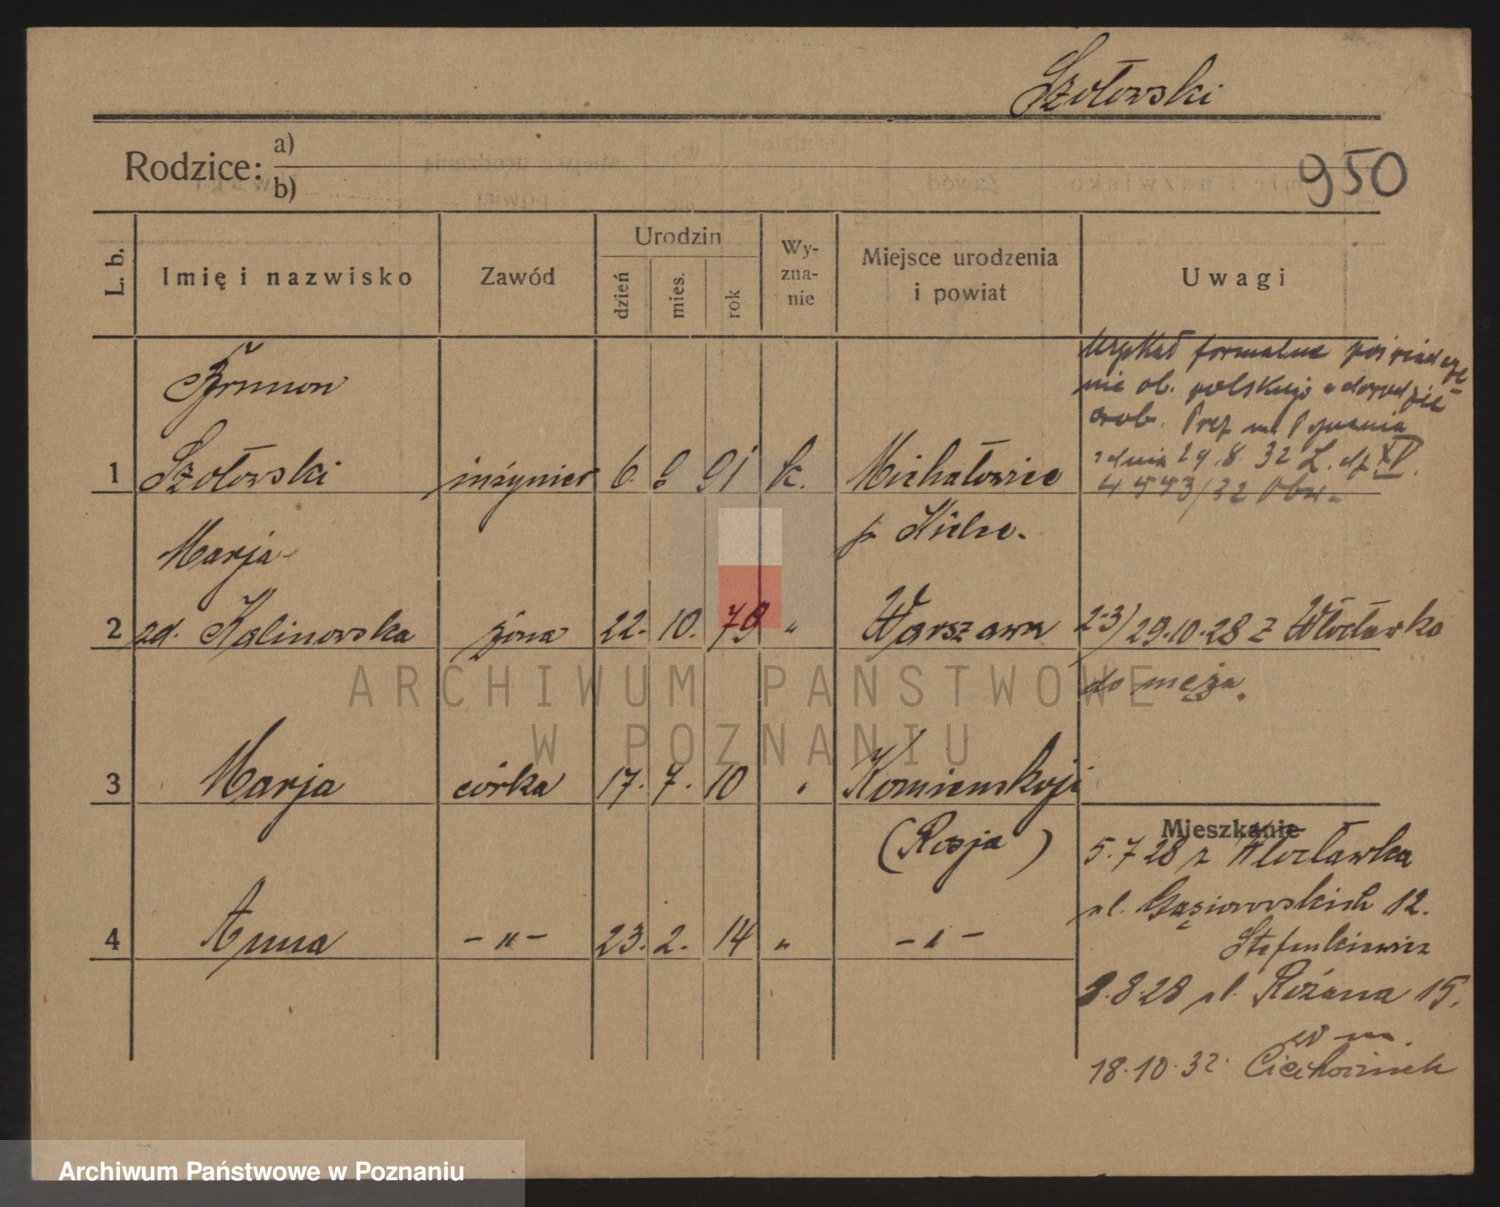 Szołowski
Rodzice:
a)
b)
950
L. b.
Imię i nazwisko
Zawód
Urodzin
dzień
mies.
rok
Wy-
zna-
nie
Miejsce urodzenia
i powiat
Uwagi
Uzyskał formalne poświadcze-
nie ob. polskiego
Prez. m. Poznania
z dnia 29.8.32 L. dz. XV.
1
Szołowski
inżynier
6. 9 91
k.
Michałowice
p. Kielce.
Marja
2
zd. Kalinowska
żona
22. 10. 79
"
Warszawa
2-3/29.10.28 z Włocławka
do męża.
ARCHIWUM PAŃSTWOWE
W POZNANIU
3
Marja
córka
17. 7. 10
"
(Rosja)
Mieszkanie
5.7 28 z Włocławka
ul. Gąsiorowskich 12.
4
Anna
- " -
23. 2. 14
"
- " -
8.8.28 ul. Różana 15.
18.10.32. Ciechocinek
Archiwum Państwowe w Poznaniu